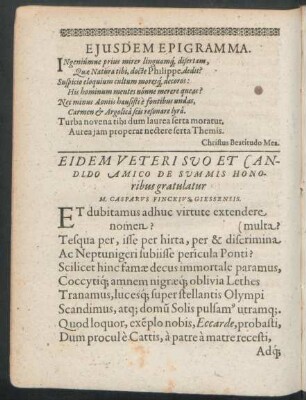 EJUSDEM EPIGRAMMA.
INgeniúmne prius mirer linguamq́; disertam,
Quæ Natura tibi, docte Philippe, dedit?
Suspicio eloquium cultum moresq́; decoros:
His hominum mentes nónne merere queas?
Nec minus Aoniis hausisti è fontibus undas,
Carmen & Argolicâ scis resonare lyrâ.
Turba novena tibi dum laurea serta moratur,
Aurea jam properat nectere serta Themis.
Christus Beatitudo Mea.
EIDEM VETERI SUO ET CAN-
DIDO AMICO DE SUMMIS HONO-
ribus gratulatur
M. CASPARUS FINCKIUS, GIESSENSIS.
ET dubitamus adhuc virtute extendere
nomen? (multa?
Tesqua per, isse per hirta, per & discrimina
Ac Neptunigeri subiisse pericula Ponti?
Scilicet hinc famæ decus immortale paramus,
Coccytiq́; amnem nigræq́; oblivia Lethes
Tranamus, lucesq́; super stellantis Olympi
Scandimus, atq; domû Solis pulsam° utramq́;.
Quod loquor, exẽplo nobis, Eccarde, probasti,
Dum procul è Cattis, à patre à matre recesti,
Adq́;